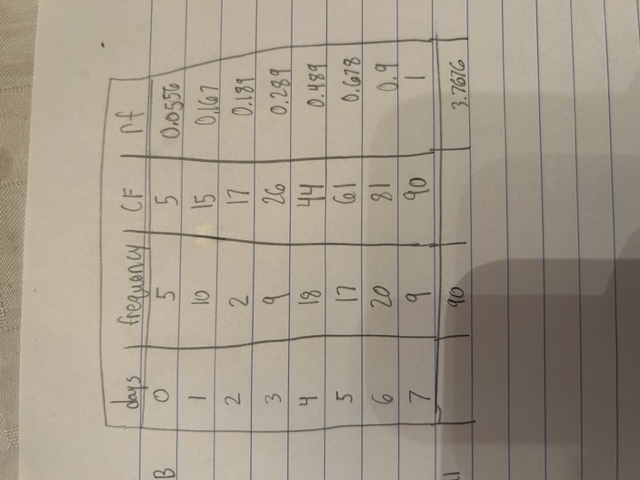 days frequency CF rf
B 0 5 5 0.0556
1 10 15 0.167
2 2 17 0.189
3 9 26 0.289
4 18 44 0.489
5 17 61 0.678
6 20 81 0.9
7 9 90 1
90 3.7676